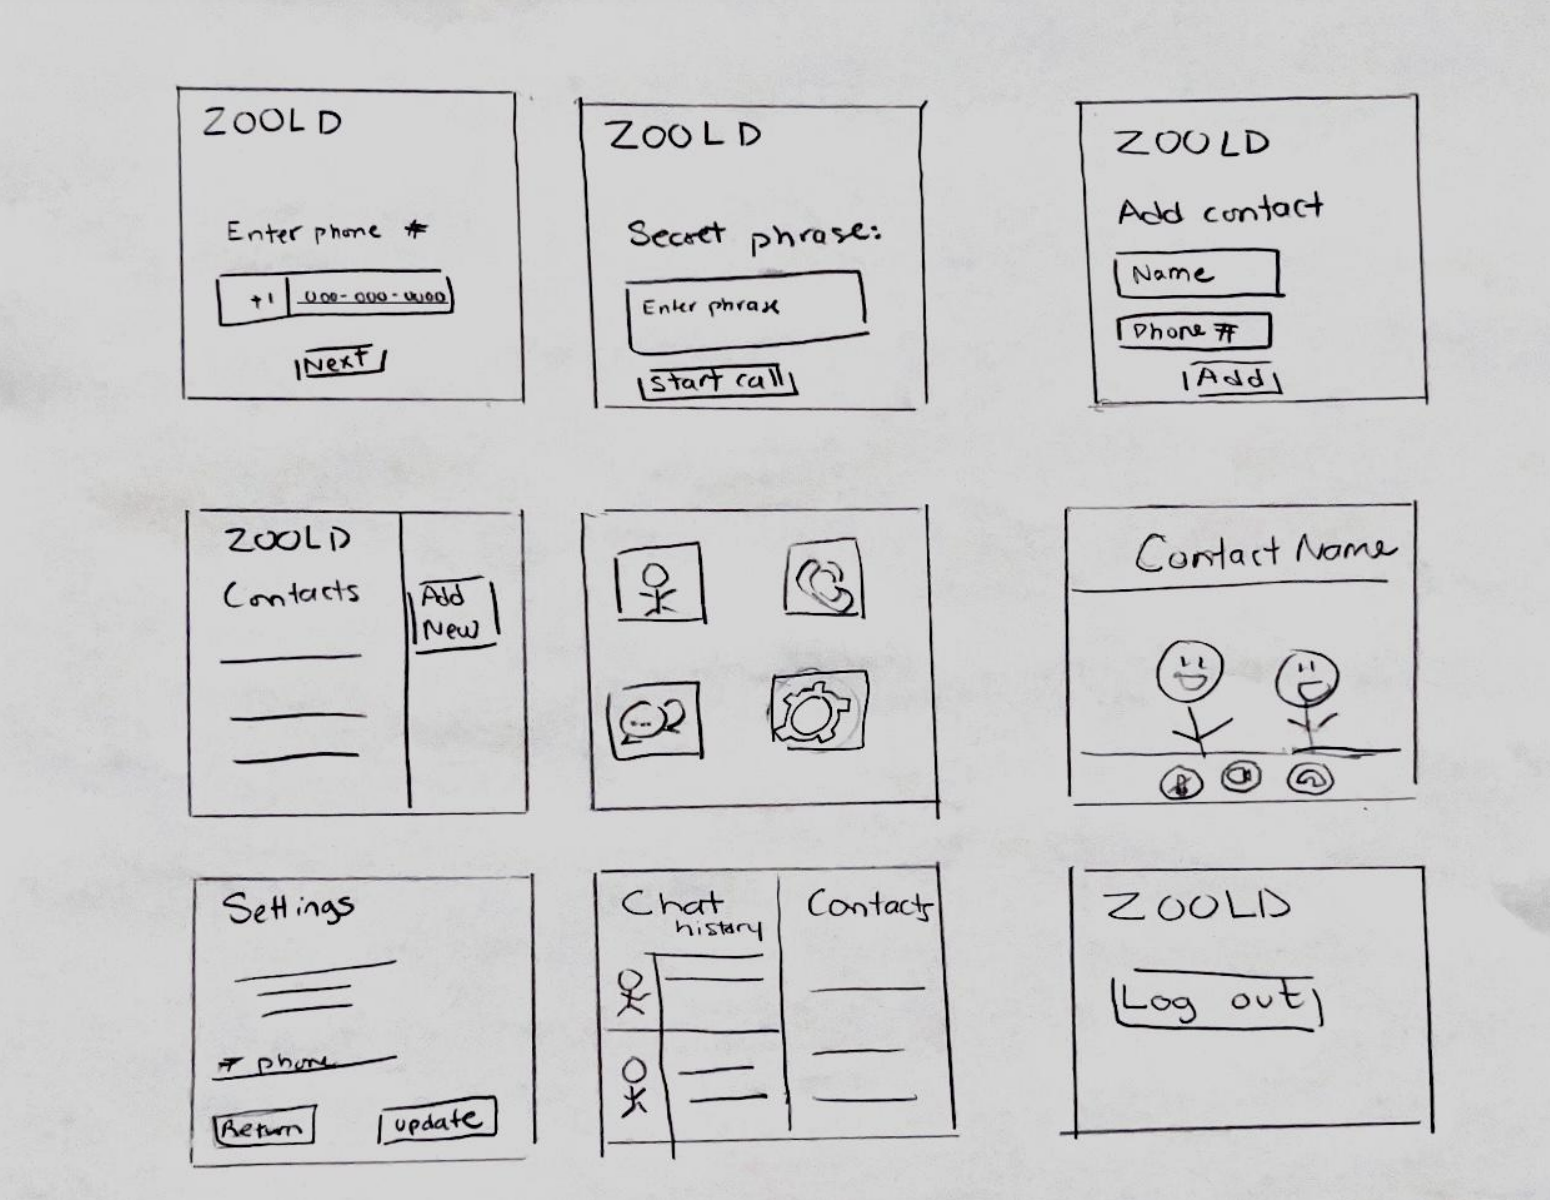 ZOOLD
Enter phone #
+1 000-000-0000
Next
ZOOLD
Secret phrase:
Enter phrase
Start call
ZOOLD
Add contact
Name
Phone #
Add
ZOOLD
Contacts
Add
New
Contact Name
Settings
# phone
Return
update
Chat
history
Contacts
ZOOLD
Log out